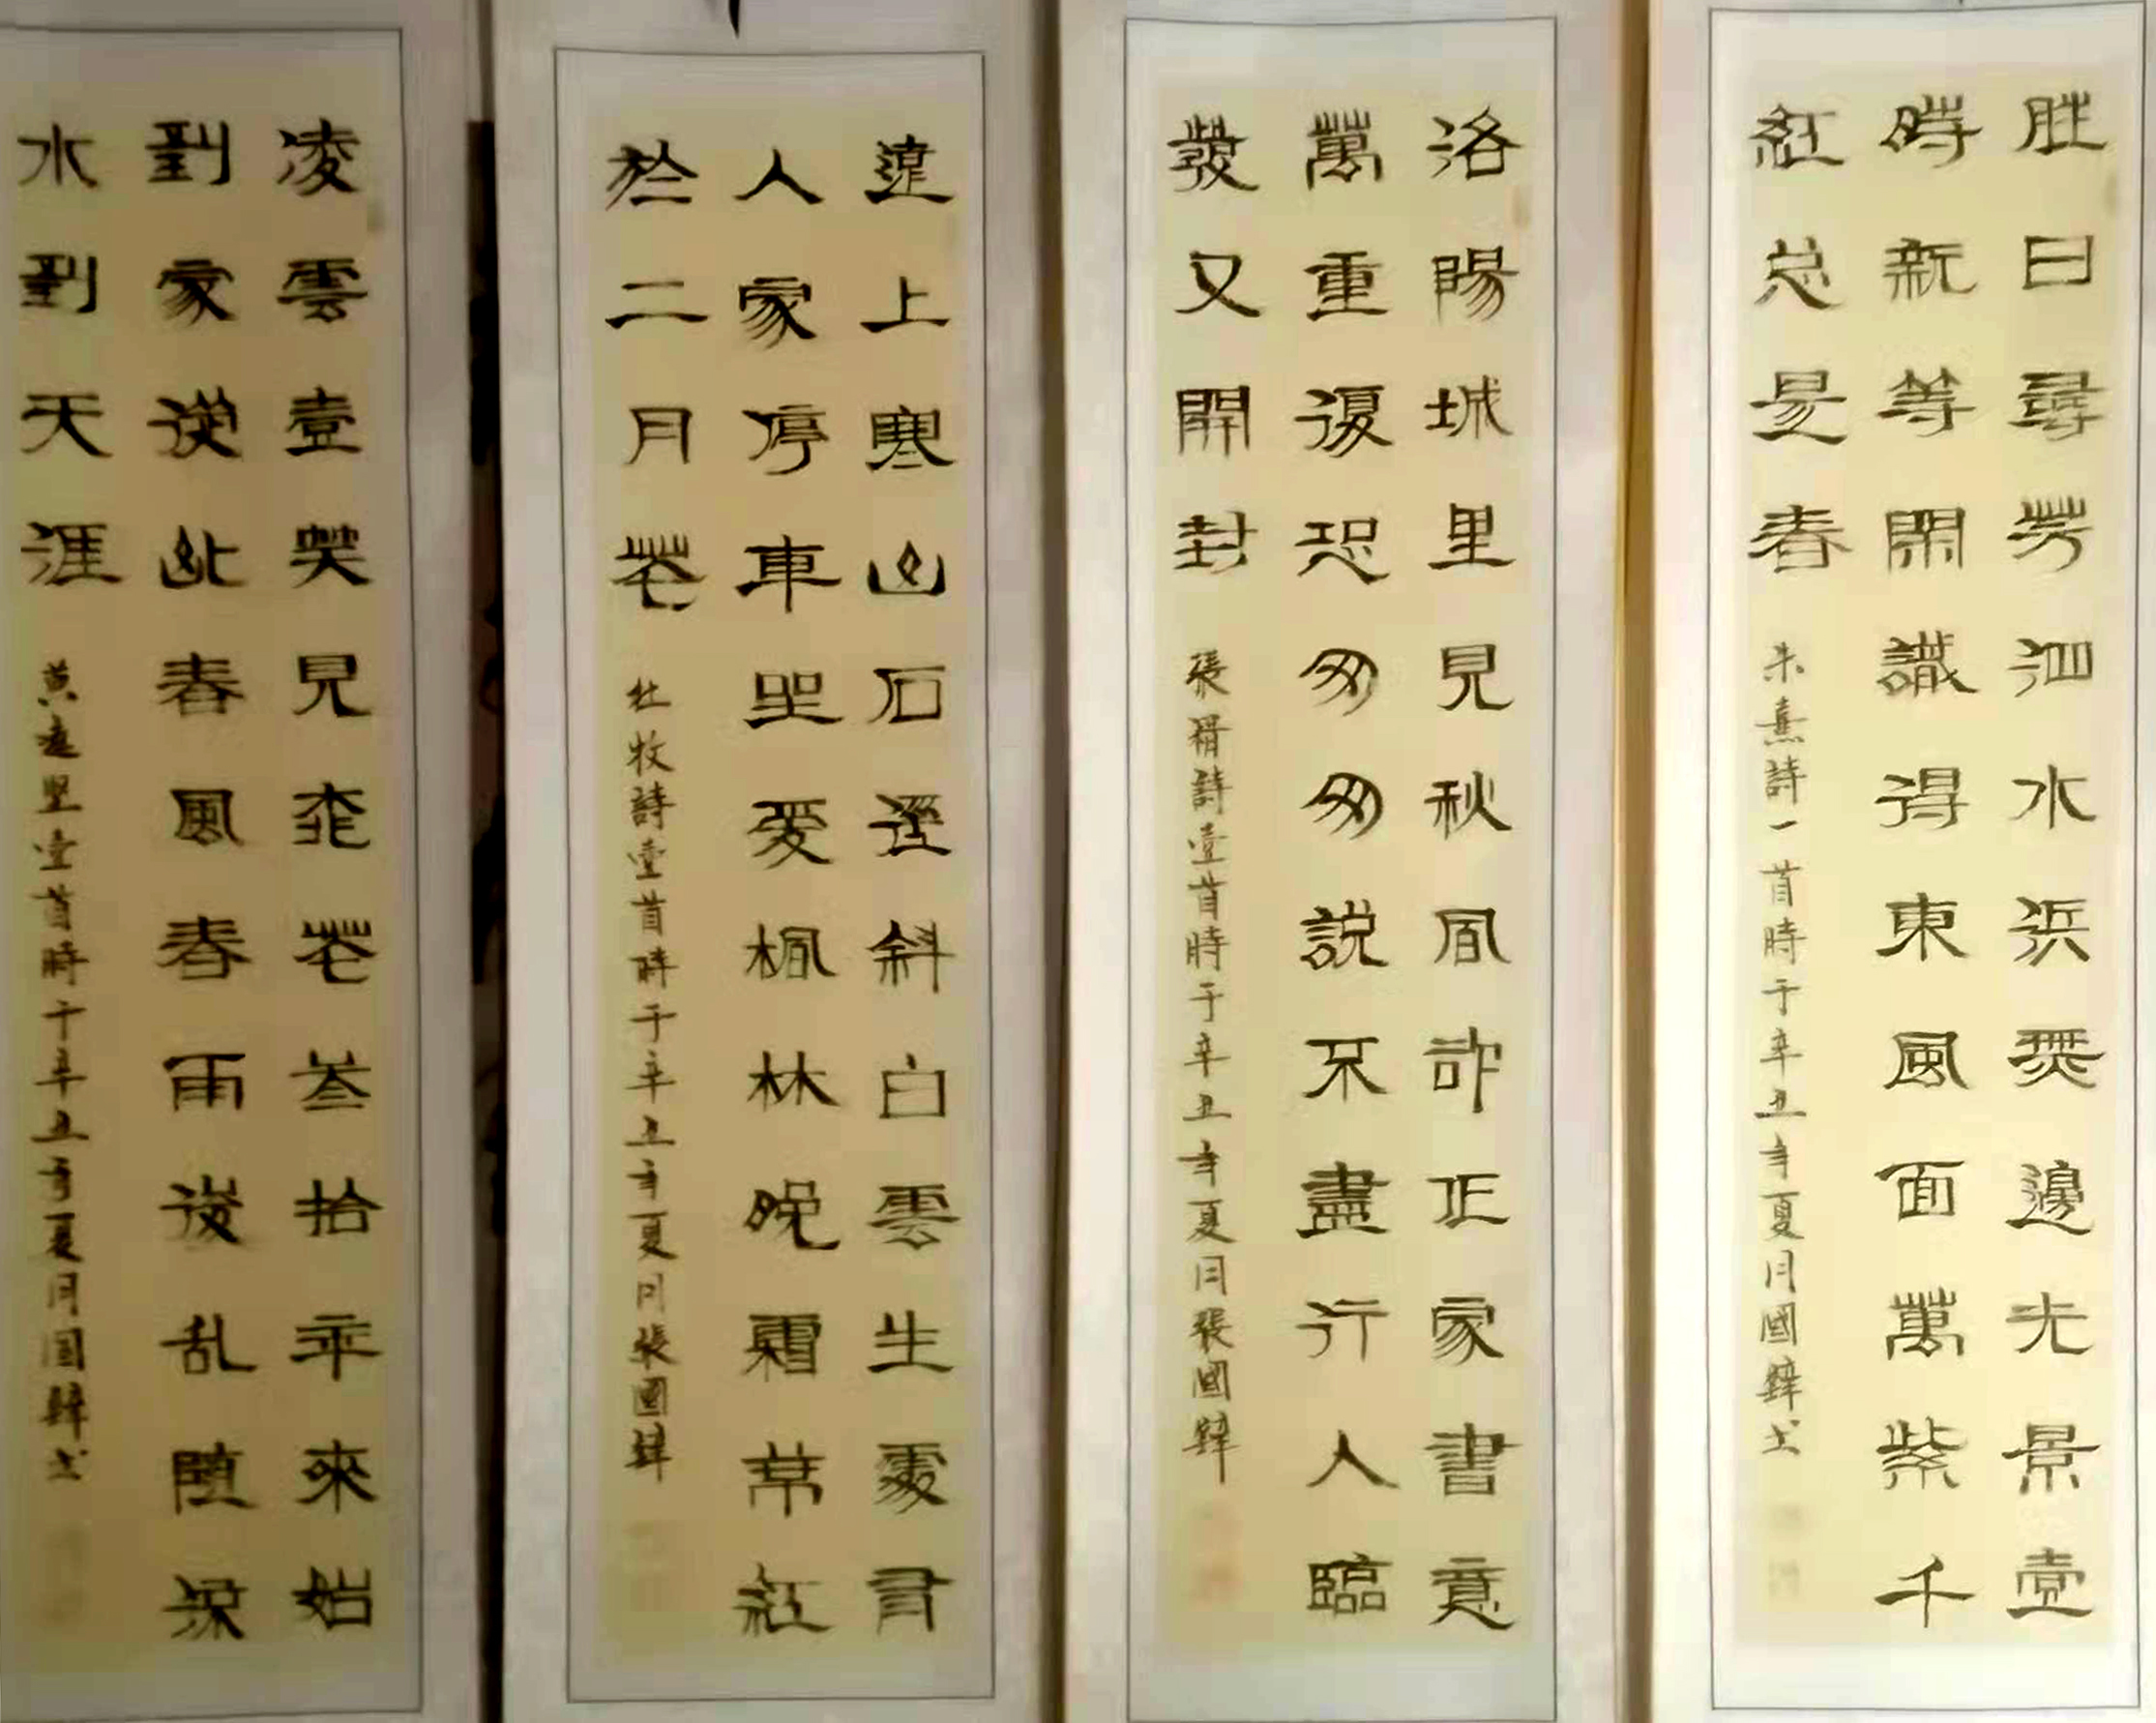 胜日尋芳泗水浜無邊光景壹
時新等閑識得東風面萬紫千
紅总是春
朱熹詩一首時于辛丑年夏月國鋒书
洛陽城里見秋風詐正家書意
萬重復恐匆匆說不盡行人臨
發又開封
張籍詩壹首時于辛丑年夏月張國鋒
遠上寒山石徑斜白雲生處有
人家停車坐愛楓林晚霜葉紅
於二月花
杜牧詩壹首時于辛丑年夏月張國鋒
凌雲壹笑見桃花叁拾年來始
到家從此春風春雨後乱随流
水到天涯
黄庭堅壹首時于辛丑年夏月國鋒书